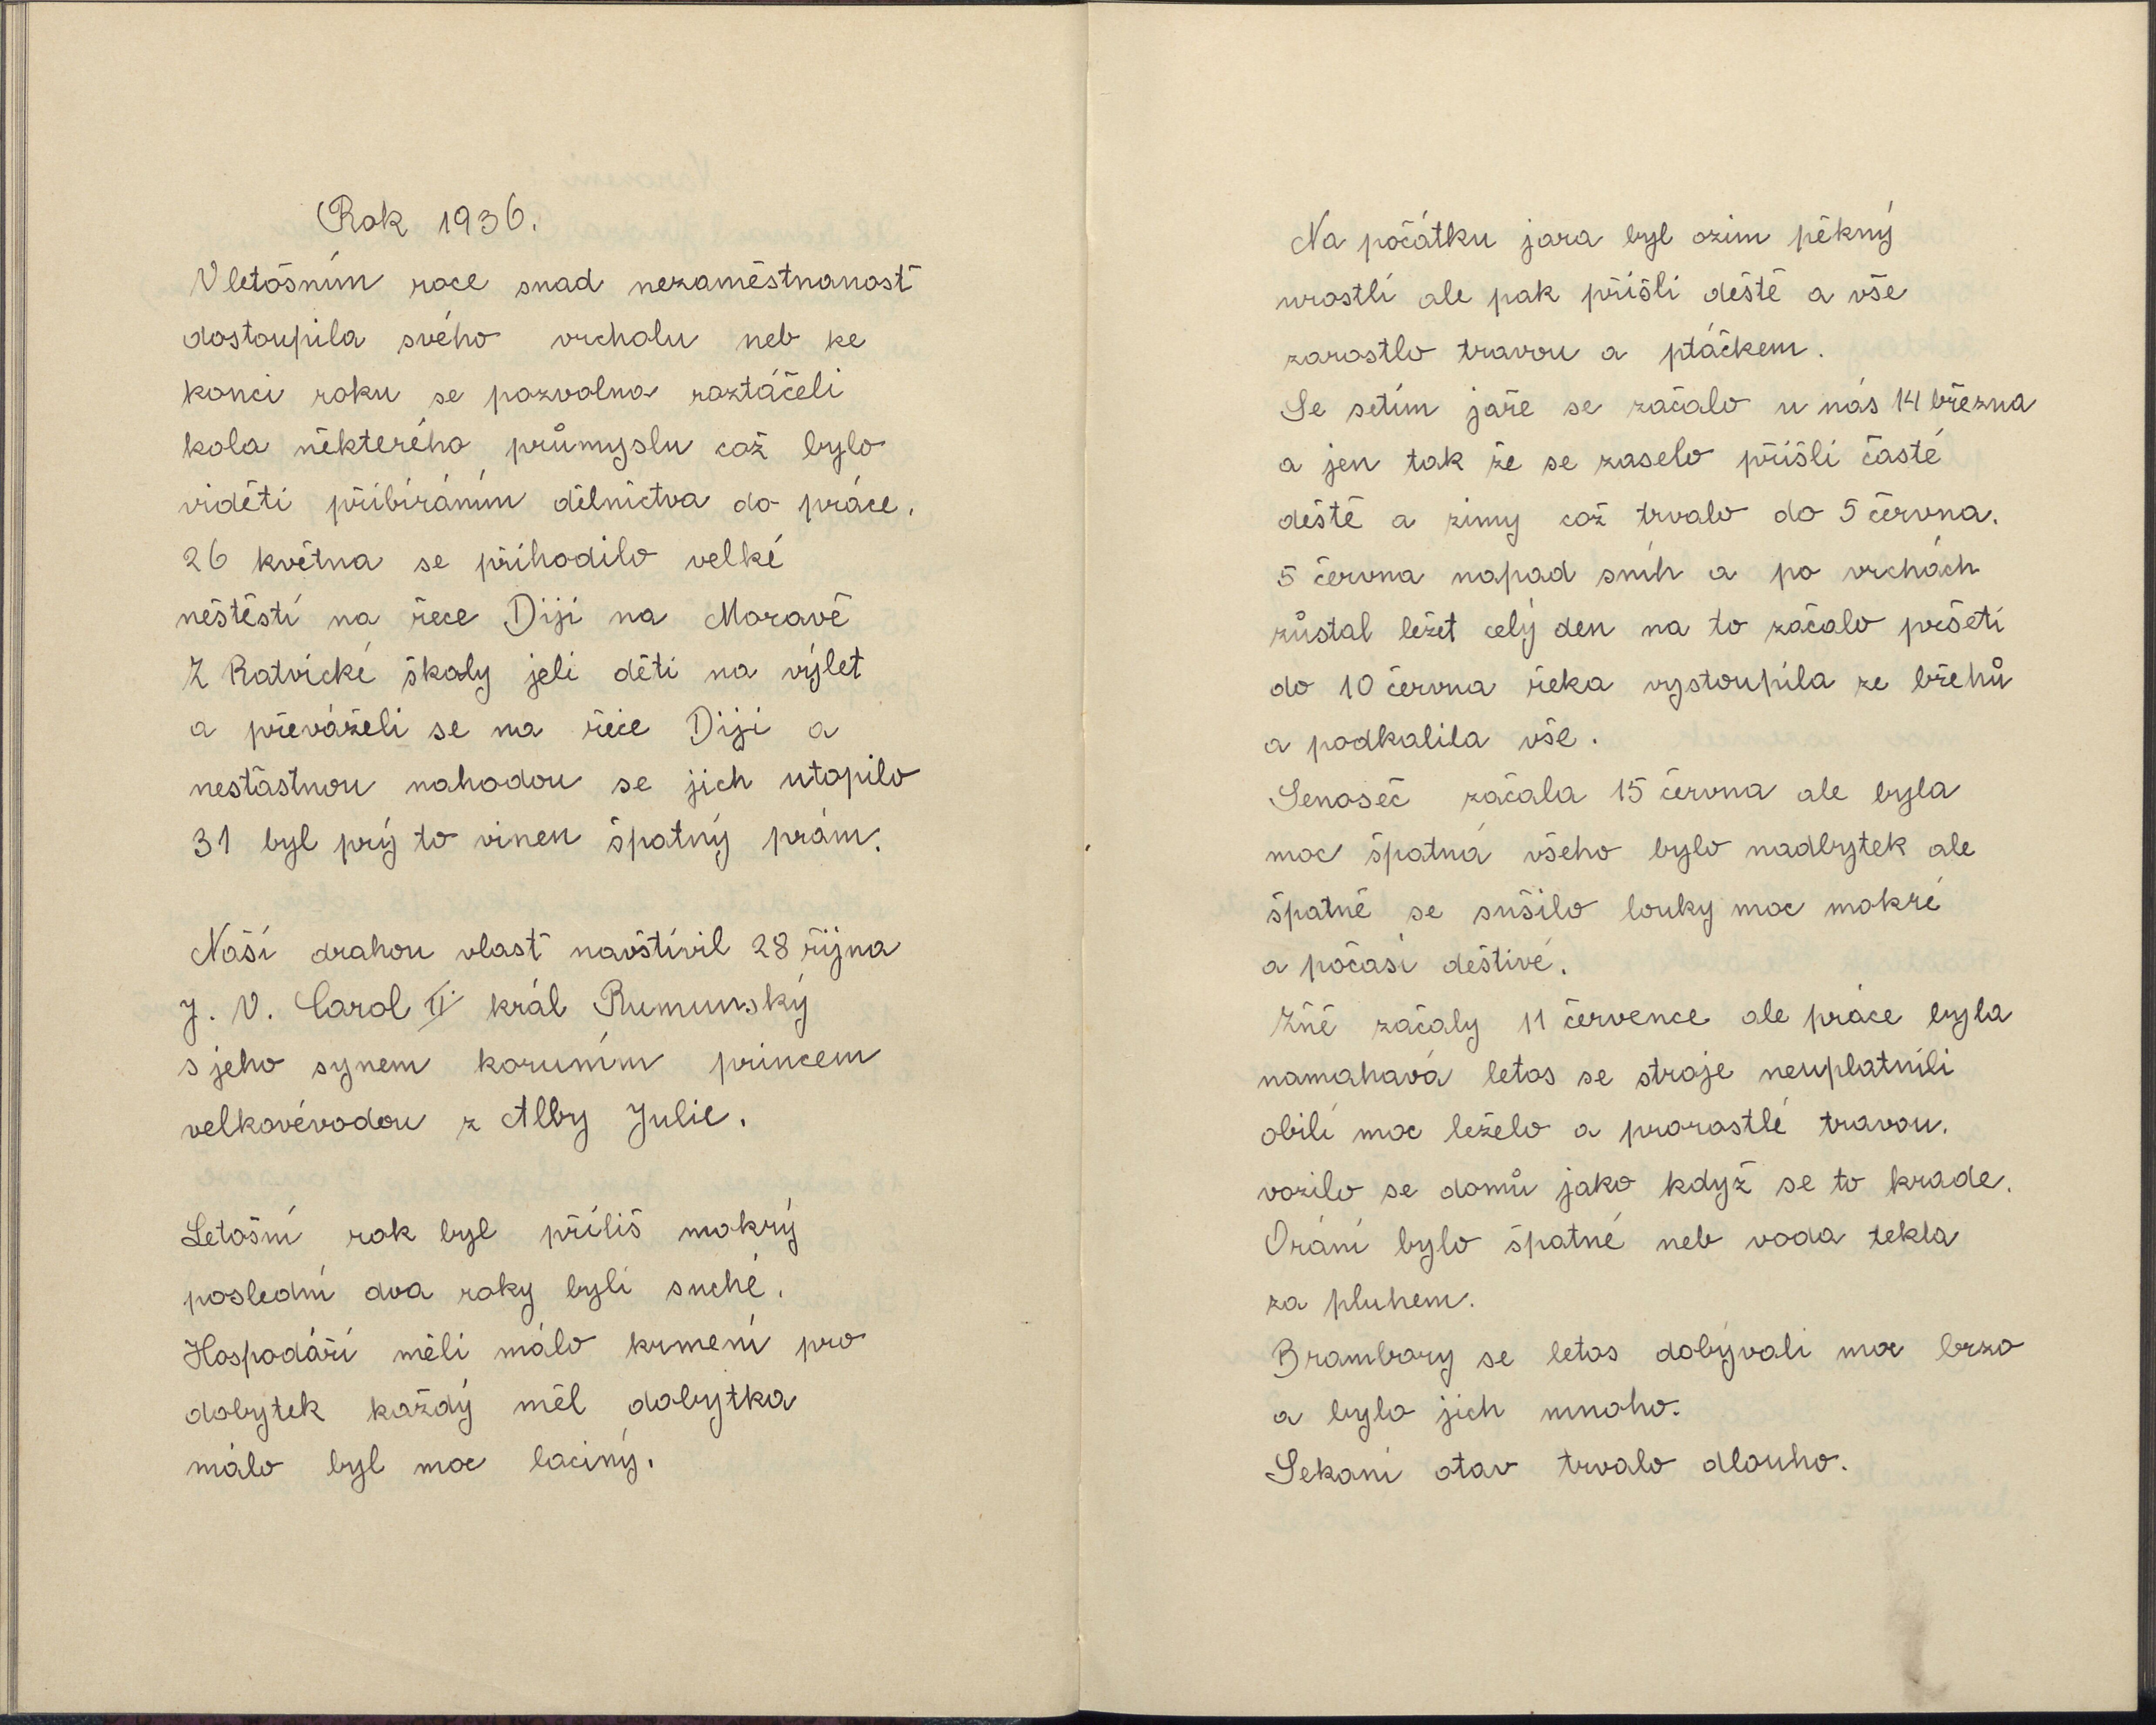 Rok 1936.
V letošním roce snad nezaměstnanosť
dostoupila svého vrcholu neb ke
konci roku se pozvolna roztáčeli
kola některého průmyslu což bylo
viděti přibíráním dělnictva do práce.
26 května se přihodilo velké
něštěstí na řece Diji na Moravě
Z Ratvické školy jeli děti na výlet
a převáželi se na řéce Diji a
nestastnou nahodou se jich utopilo
31 byl prý to vinen špatný prám.
Naší drahou vlasť navštívil 28 října
J. V. Carol II král Rumunský
s jeho synem koruním princem
velkovévodou z Alby Julie.
Letošní rok byl příliš mokrý
poslední dva roky byli suché.
Hospodáři měli málo krmení pro
dobytek každý měl dobytka
málo byl moc laciný.
Na počátku jara byl ozim pěkný
urostlí ale pak přišli deště a vše
zarostlo travou a ptáčkem.
Se setím jaře se začalo u nás 14 března
a jen tak že se zaselo přišli časté
deště a zimy což trvalo do 5 června.
5 června napad sníh a po vrchách
zůstal ležet celý den na to začalo pršeti
do 10 června řeka vystoupila ze břehů
a podkalila vše.
Senoseč začala 15 června ale byla
moc špatná všeho bylo nadbytek ale
špatně se sušilo louky moc mokré
a počasí deštivé.
Žně začaly 11 července ale práce byla
namahavá letos se stroje neuplatnili
obilí moc leželo a prorostlé travou.
vozilo se domů jako když se to krade.
Orání bylo špatné neb voda tekla
za pluhem.
Brambory se letos dobývali moc brzo
a bylo jich mnoho.
Sekaní otav trvalo dlouho.